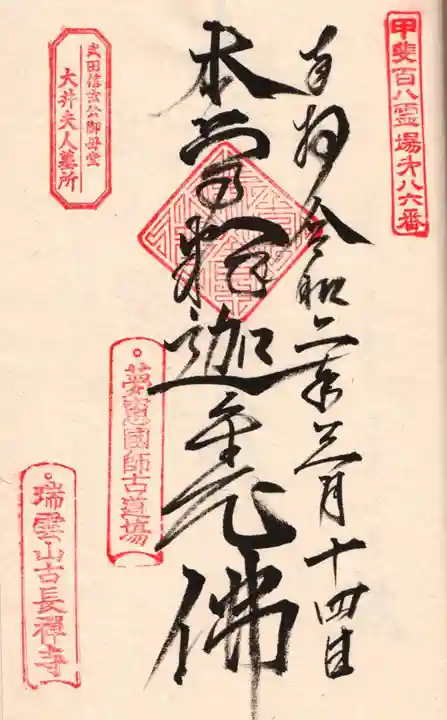 甲斐百八霊場第八六番
奉拝 令和二年三月十四日
本尊釋迦牟尼佛
夢窓國師古道場
武田信玄公御母堂
大井夫人墓所
瑞雲山古長禅寺